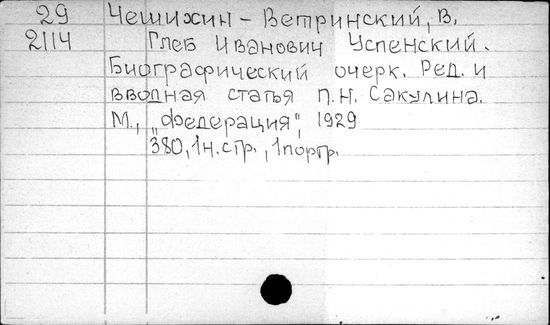 29 Чешихин-Ветринский, В.
2114 Глеб Иванович Успенский.
Биографический очерк. Ред. и
вводная статья П.Н. Сакулина.
М., „Федерация", 1929
380, 1 н. стр., 1 портр.